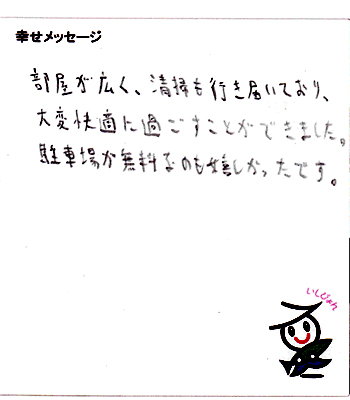 幸せメッセージ
部屋が広く、清掃も行き届いており、
大変快適に過ごすことができました。
駐車場が無料なのも嬉しかったです。